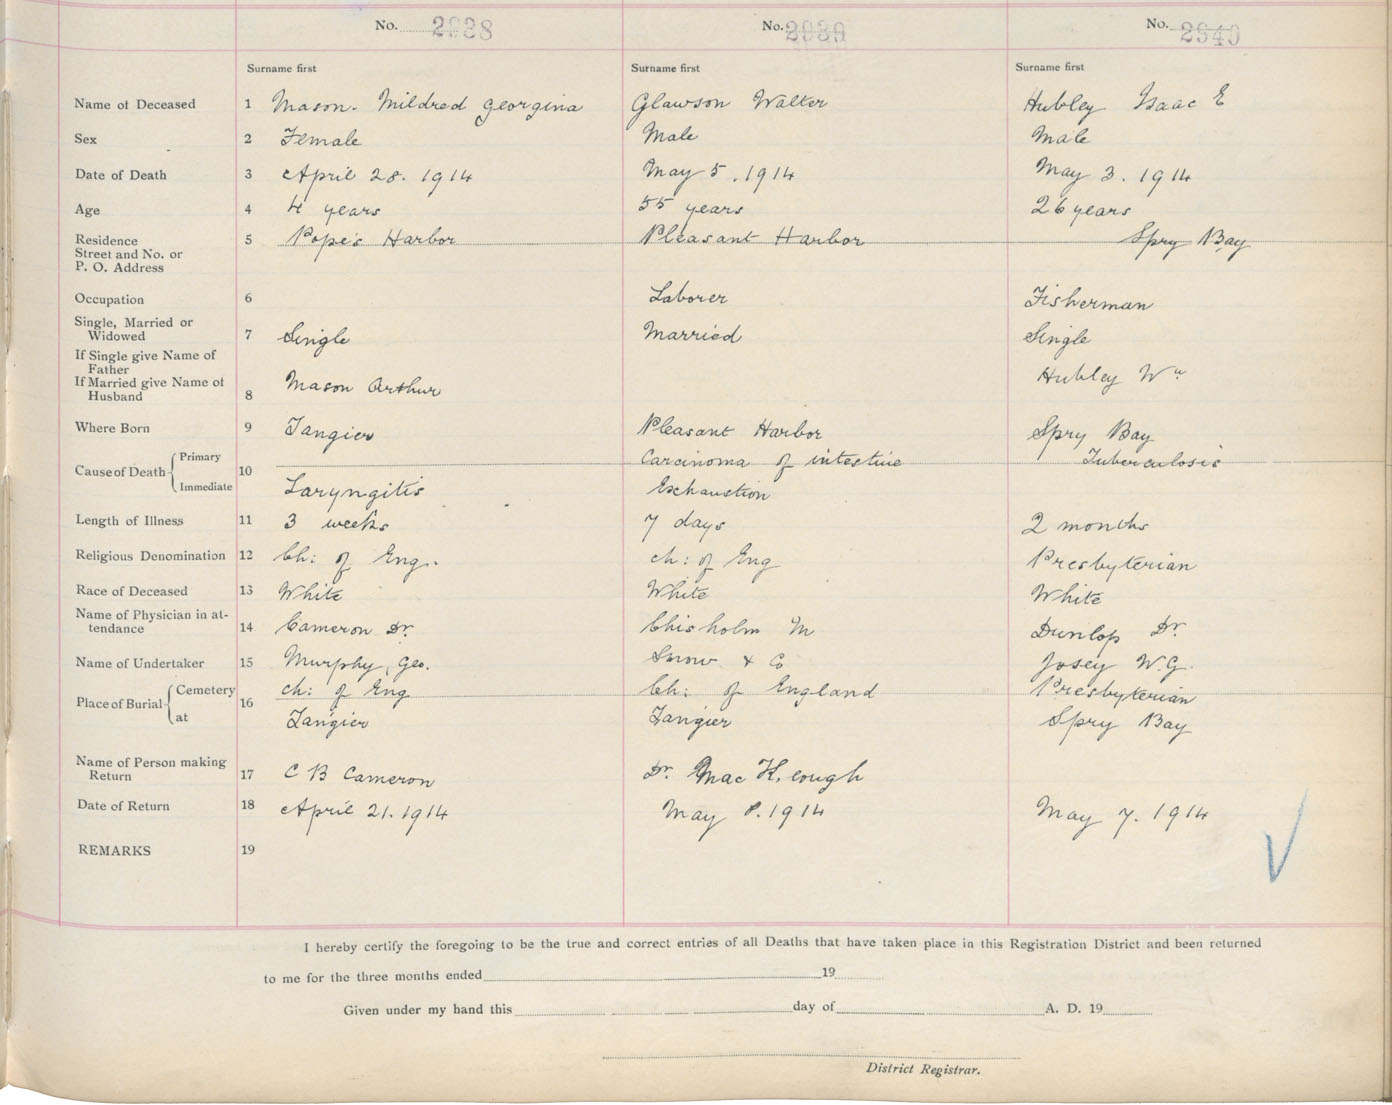 No. 2938 No. 2939 No. 2940
Surname first Surname first Surname first
Name of Deceased 1 Mason. Mildred Georgina Glawson Walter Hubley Isaac E
Sex 2 Female Male Male
Date of Death 3 April 28. 1914 May 5. 1914 May 3. 1914
Age 4 4 years 55 years 26 years
Residence 5 Pope's Harbor Pleasant Harbor Spry Bay
Street and No. or
P. O. Address
Occupation 6 Laborer Fisherman
Single, Married or
Widowed 7 Single Married Single
If Single give Name of
Father
If Married give Name of
Husband 8 Mason Arthur Hubley Wm
Where Born 9 Tangier Pleasant Harbor Spry Bay
Cause of Death Primary 10 Carcinoma of intestine Tuberculosis
Immediate Laryngitis Exhaustion
Length of Illness 11 3 weeks 7 days 2 months
Religious Denomination 12 Ch: of Eng. ch: of Eng Presbyterian
Race of Deceased 13 White White White
Name of Physician in at-
tendance 14 Cameron Dr. Chisholm M Dunlop Dr.
Name of Undertaker 15 Murphy, Geo. Snow & Co Josey W.G.
Place of Burial Cemetery 16 ch: of Eng Ch: of England Presbyterian
at Tangier Tangier Spry Bay
Name of Person making
Return 17 C B Cameron Dr. Mac K.eough
Date of Return 18 April 21. 1914 May 8. 1914 May 7. 1914
REMARKS 19
I hereby certify the foregoing to be the true and correct entries of all Deaths that have taken place in this Registration District and been returned
to me for the three months ended 19
Given under my hand this day of A. D. 19
District Registrar.